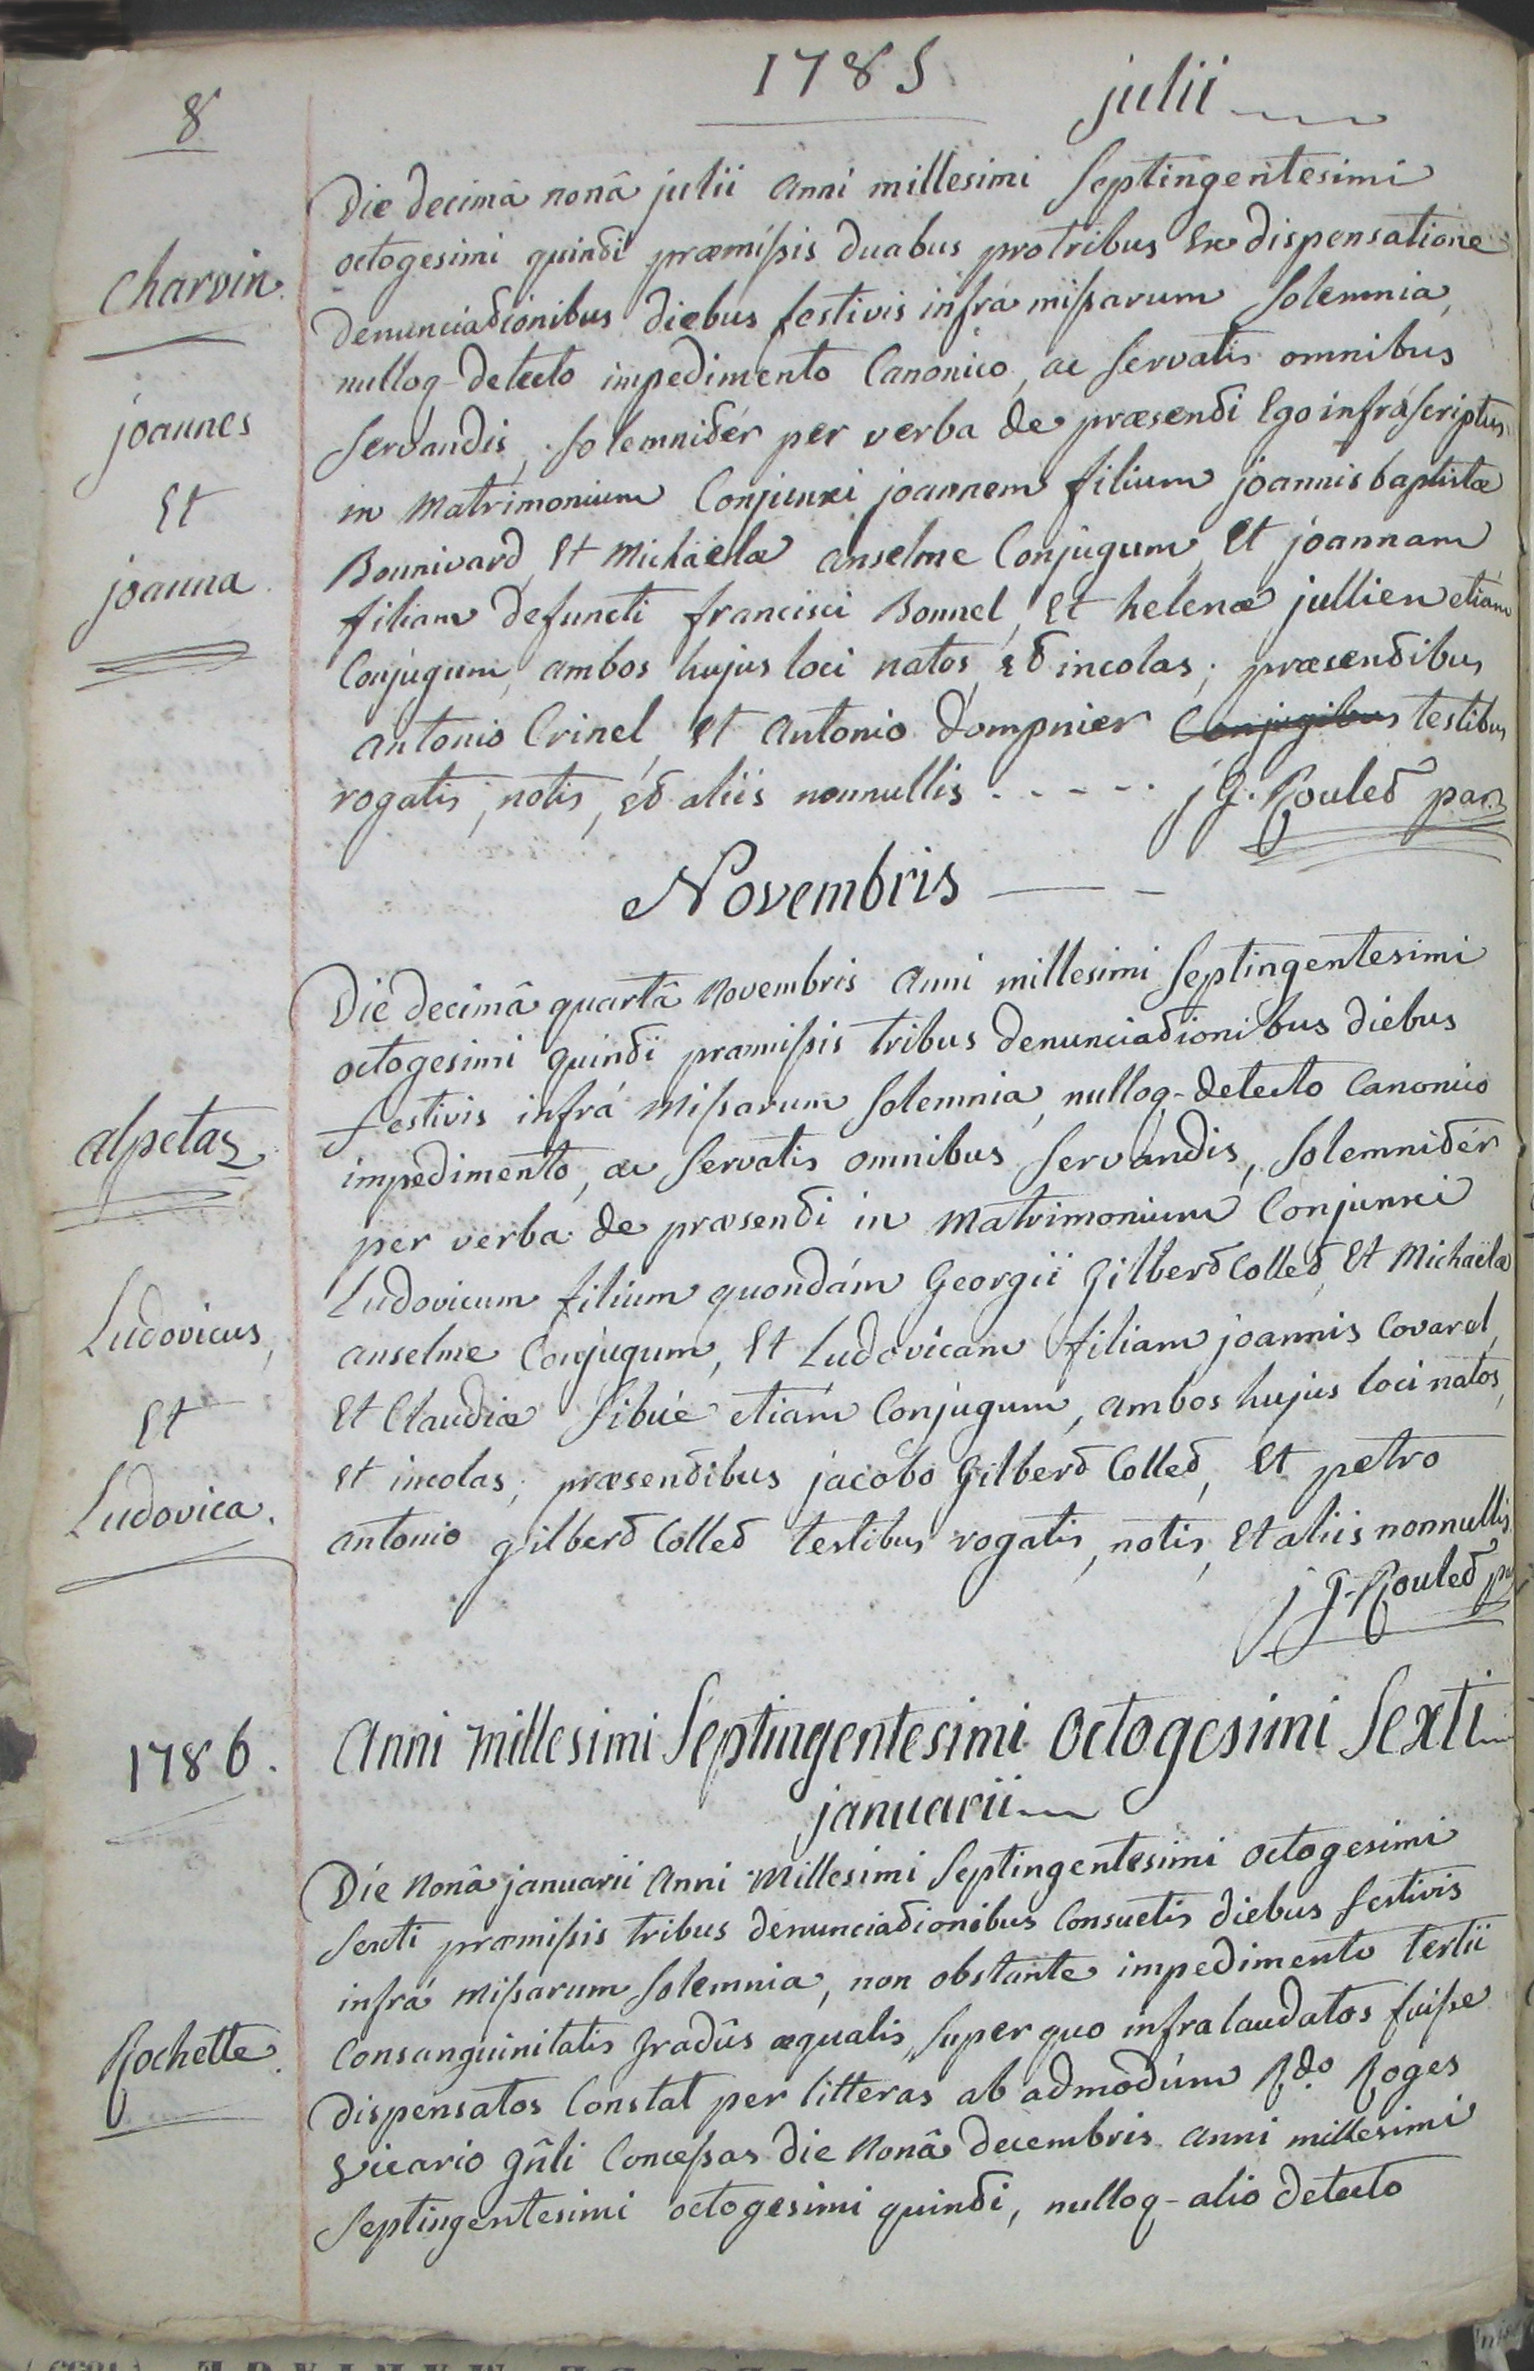 8
1785
julii
Die decimâ nonâ julii anni millesimi septingentesimi
octogesimi quinti præmissis duabus pro tribus ex dispensatione
charvin
denunciationibus diebus festivis infrà missarum solemnia,
nulloq- detecto impedimento Canonico, ac servatis omnibus
joannes
servandis, solemnitér per verba de præsenti Ego infráscriptus
Et
in Matrimonium Conjunxi joannem filium joannis baptistæ
joanna
Bonnivard, Et Michaelæ anselme Conjugum, Et joannam
filiam defuncti francisci Bonnel, Et helenæ jullien etiám
Conjugum, ambos hujus loci natos, et incolas; præsentibus
antonio Crinel, Et Antonio Dompnier Conjugibus testibus
rogatis, notis, et aliis nonnullis - - - - - j G. Roulet par
Novembris
Die decimâ quartâ Novembris Anni millesimi septingentesimi
octogesimi quinti præmissis tribus denunciationibus diebus
festivis infrá Missarum solemnia, nulloq- detecto Canonico
alpetaz
impedimento, ac servatis omnibus servandis, solemnitér
per verba de præsenti in Matrimonium Conjunxi
Ludovicum filium quondám Georgii Gilbert Collet, Et Michaëlæ
Ludovicus,
anselme Conjugum, Et Ludovicam filiam joannis Covarel,
Et
Et Claudiæ Sibué etiám Conjugum, ambos hujus loci natos,
Et incolas; præsentibus jacobo Gilbert Collet, Et petro
Ludovica.
antonio gilbert Collet testibus rogatis, notis, Et aliis nonnullis
j G. Roulet
1786.
Anni Millesimi Septingentesimi Octogesimi Sexti
januarii
Die Nonâ januarii Anni Millesimi Septingentesimi Octogesimi
sexti præmissis tribus denunciationibus Consuetis diebus festivis
infrá Missarum solemnia, non obstante impedimento tertii
Rochette
Consanguinitatis gradûs æqualis, super quo infra laudatos fuisse
dispensatos Constat per litteras ab admodúm Rdo Roges
vicario gñli Concessas die Nonâ decembris anni millesimi
septingentesimi octogesimi quinti, nulloq- alio detecto